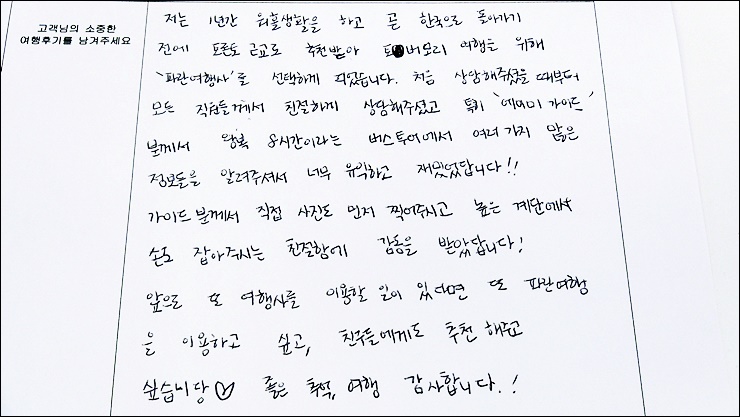 고객님의 소중한
여행후기를 남겨주세요
저는 1년간 워홀생활을 하고 곧 한국으로 돌아가기
전에 토론토 근교로 추천받아 버모리 여행을 위해
'파란여행사'로 선택하게 되었습니다. 처음 상담해주셨을 때부터
모든 직원들께서 친절하게 상담해주셨고 특히 '에이미 가이드'
분께서 왕복 8시간이라는 버스투어에서 여러 가지 많은
정보들을 알려주셔서 너무 유익하고 재밌었답니다!!
가이드 분께서 직접 사진도 먼저 찍어주시고 높은 계단에서
손도 잡아주시는 친절함에 감동을 받았답니다!
앞으로 또 여행사를 이용할 일이 있다면 또 파란여행
을 이용하고 싶고, 친구들에게도 추천 해주고
싶습니당 좋은 추억, 여행 감사합니다.!